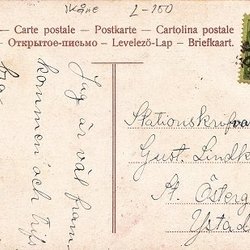 Skåne L-100
– Carte postale – Postkarte – Cartolina postale
– Открытое-письмо – Levelező-Lap – Briefkaart.
Jag är väl fram
kommen och
Stationskrifva
Gust. Lindk
St. Österg
Ystad